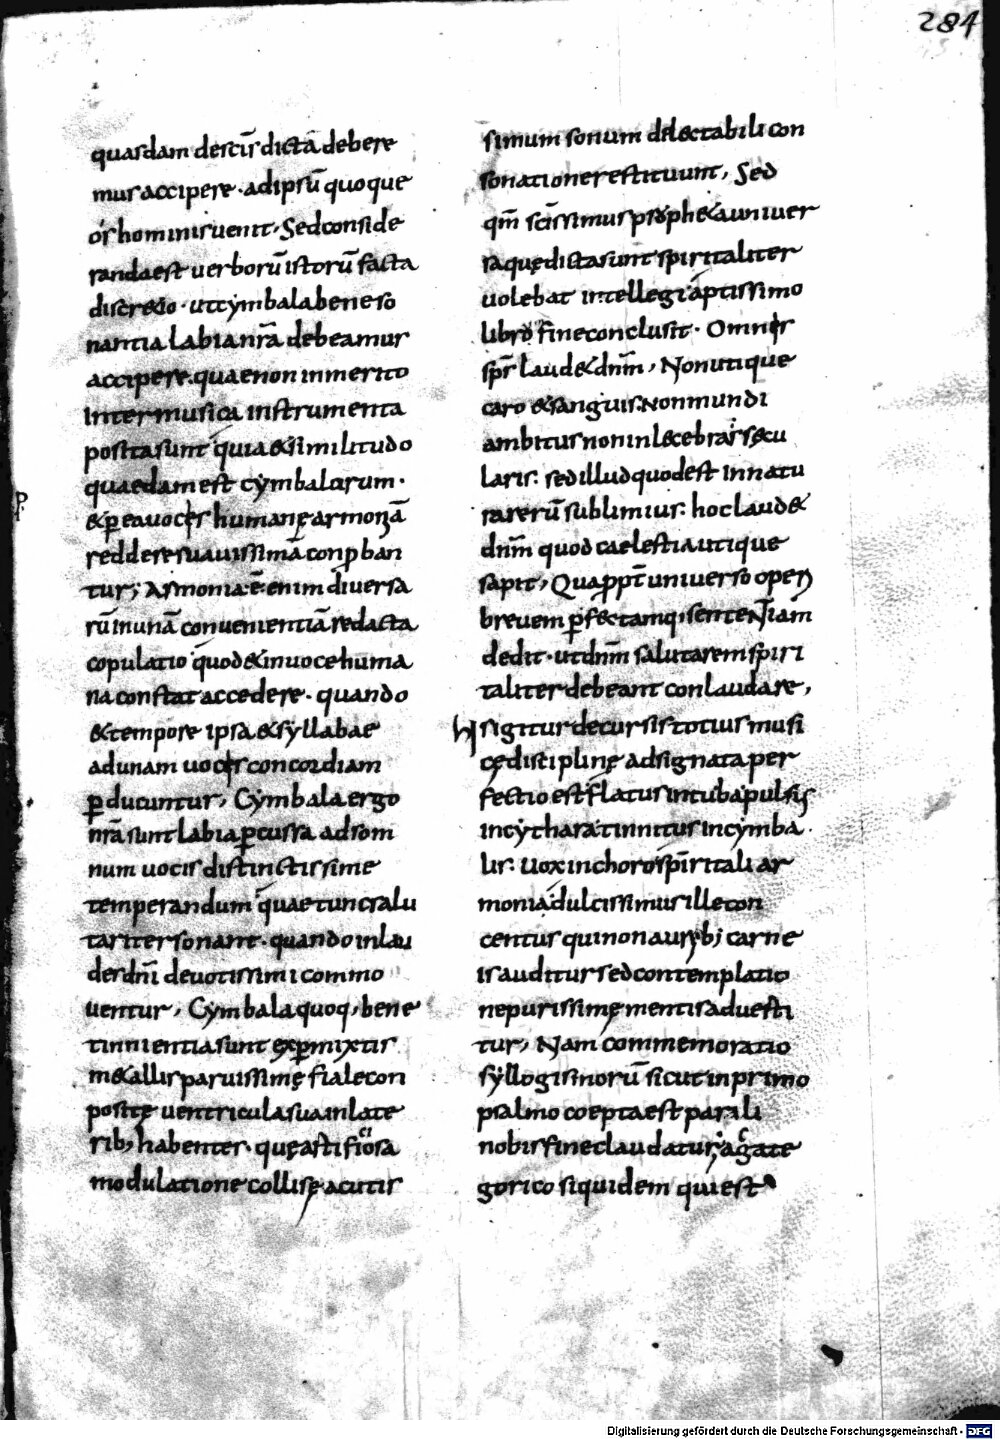 284
quasdam descīs dicta debere
mur accipere · ad ipsū quo que
os hominis uenit, Sed conside
randa est uerborū istorū facta
discretio · ut cymbala bene so
nantia labia nr̄a debeamus
accipere · quae non inmerito
inter musica instrumenta
posita sunt quia & similitudo
quaedam est cymbalarum ·
& ꝑ ea uoces humanę armonā
reddere suauissimā conꝓban
tur; Armonia ē enim diuersa
rū in unā conuenientiā redacta
copulatio quod & in uoce huma
na constat accedere · quando
& tempore ipsa & syllabae
ad unam uocis concordiam
ꝑ ducuntur, Cymbala ergo
nr̄a sunt labia ꝑcussa ad som
num uocis distinctissime
temperandum quae tunc salu
tariter sonant · quando in lau
des dn̄i deuotissimi commo
uentur, Cymbala quoq, bene
tinnientia sunt exꝑmixtis
m&allis paruissimę fiale con
positę uentricula sua in late
rib; habentes · quę astificiosa
modulatione collisę acutis
simum sonum del&tabili con
sonatione restituunt, Sed
qm̄ scīssimus proph&a uniuer
sa quę dicta sunt spiritaliter
uolebat intellegi aptissimo
libro fine conclusit · Omnis
sp̄s laud& dn̄m, Non utique
caro & sanguis non mundi
ambitus non inlecebras secu
laris: sed illud quod est in natu
ra rerū sublimius: hoc laud&
dn̄m quod caelestia utique
sapit, Quaꝓpt̄ uniuerso operi
breuem ꝑfectamq; sententiam
dedit · ut dn̄m salutarem spiri
taliter debeant conlaudare,
His igitur decursis totius musi
cę disciplinę adsignata per
fectio est flatus in tuba pulsis
in cythara tinnitus in cymba
lis: uox in choro spiritali ar
monia dulcissimus ille con
centus qui non aurib; carne
is auditur sed contemplatio
ne purissimę mentis aduesti
tur, Nam commemoratio
syllogismorū sicut in primo
psalmo coepta est parili
nobis fine claudatur, a cate
gorico siquidem qui est